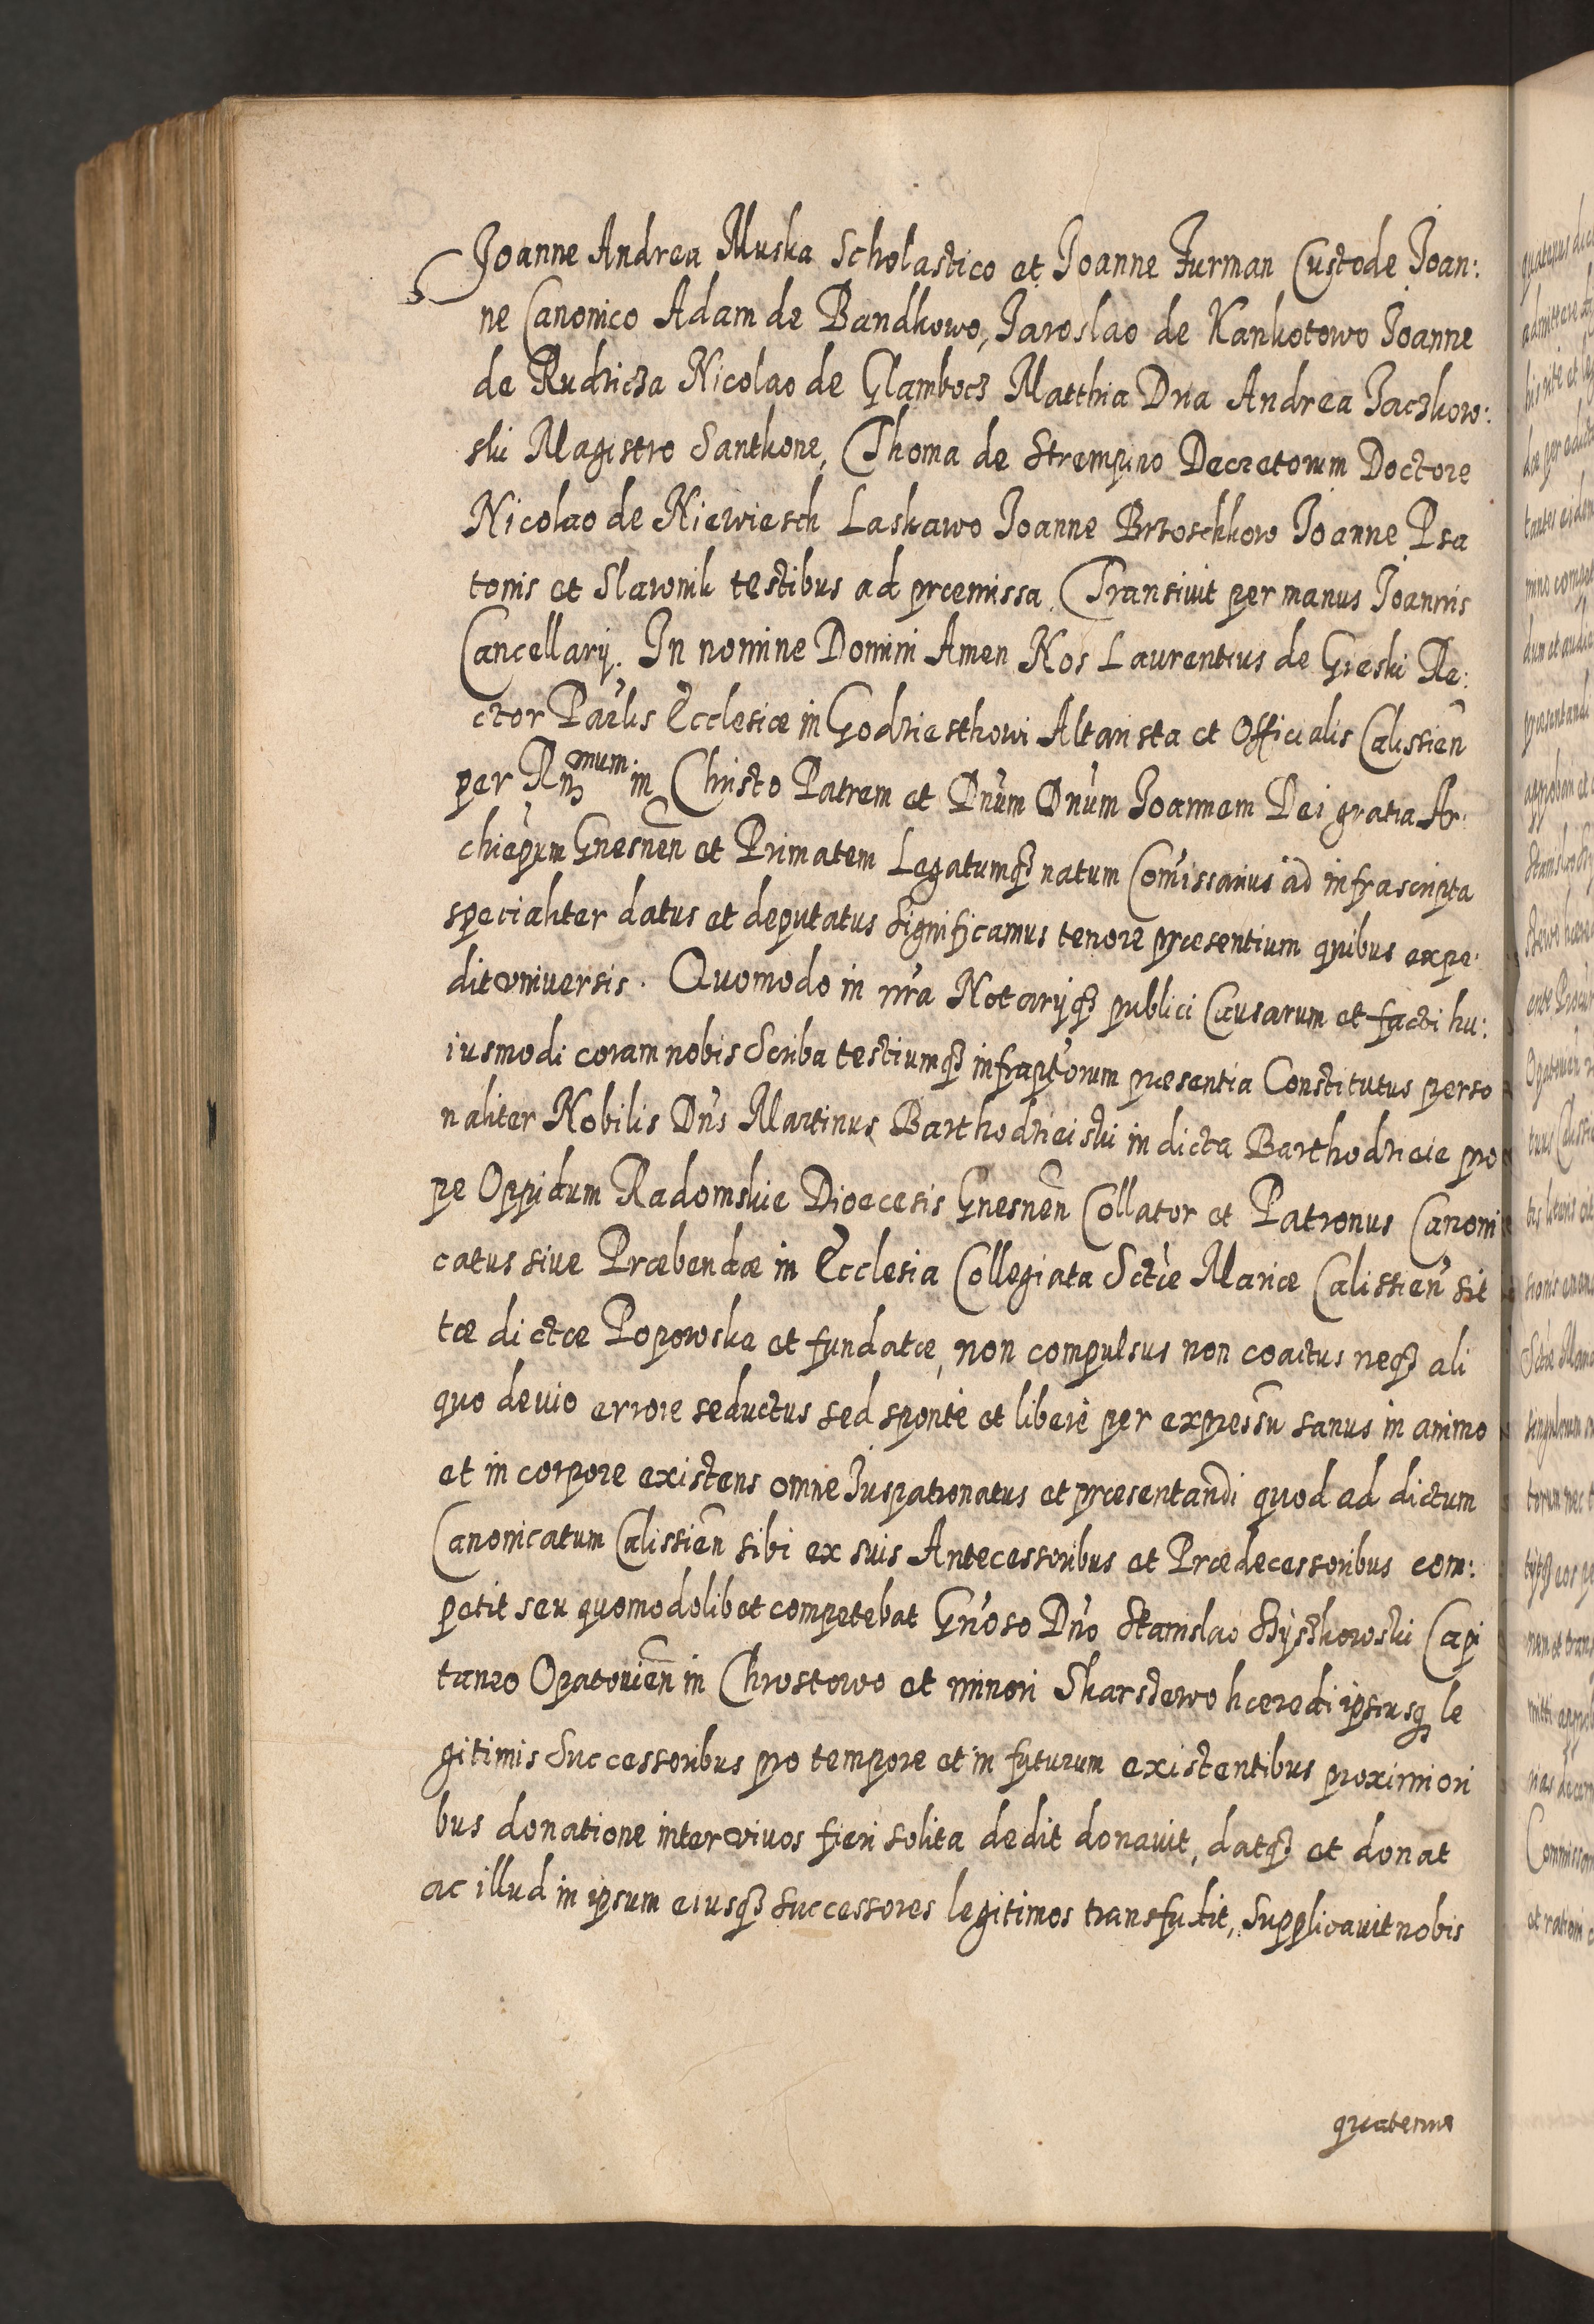 Joanne Andrea Muska Scholastico et Joanne Furman Custode Joan:
ne Canonico Adam de Bandkowo, Jaroslao de Kankotowo Joanne
de Rudzicza Nicolao de Glambocz Matthia Dna Andrea Jaczkow:
ski Magistro Santkone, Thoma de Strempino Decretorum Doctore
Nicolao de Niewiesch Laskawo Joanne Brzoschkow Joanne Psa
tonis et Slawnik testibus ad præmissa. Transivit per manus Joannis
Cancellarij. In nomine Domini Amen Nos Laurentius de Gieski Re:
ctor Paũlis Ecclesiæ in Godziesthowi Altarista et Officialis Calissieñ
per Rñ mum in Christo Patrem et Dnum Dnum Joannem Dei gratia Ar:
chiepum Gnesneñ et Primatem Legatumq3 natum Comissarius ad infrascripta
specialiter datus et deputatus Significamus tenore præsentium quibus expe:
dit vniuersis. Quomodo in nra Notarijq3 publici Causarum et facti hu:
iusmodi coram nobis Scriba testiumq3 infraptorum præsentia Constitutus perso
naliter Nobilis Dns Martinus Barthodzieiski in dicta Barthodzieie pro
pe Oppidum Radomskie Diœcesis Gnesneñ Collator et Patronus Canoni
catus siue Præbendæ in Ecclesia Collegiata Sctæ Mariæ Calissieñ sit
tæ dictæ Popowska et fundatæ, non compulsus non coactus neq3 ali
quo deuio errore seductus sed sponte et libere per expressũ sanus in animo
et in corpore existens omne Juspatronatus et præsentandi quod ad dictum
Canonicatum Calissieñ sibi ex suis Antecessoribus et Prædecessoribus com:
petit seu quomodolibet competebat Gnoso Dno Stanislao Szyszkowski Capi
taneo Opatouieñ in Chrostowo et minori Skarszewo hæredi ipsiusq3 le
gitimis Successoribus pro tempore et in futurum existentibus proximiori
bus donatione inter viuos fieri solita dedit donauit, datq3 et donat
ac illud in ipsum eiusq3 successores legitimos transfudit, Supplicauit nobis
quatenus